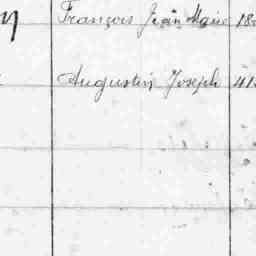 François Jean Marie 18
Augustin Joseph 41